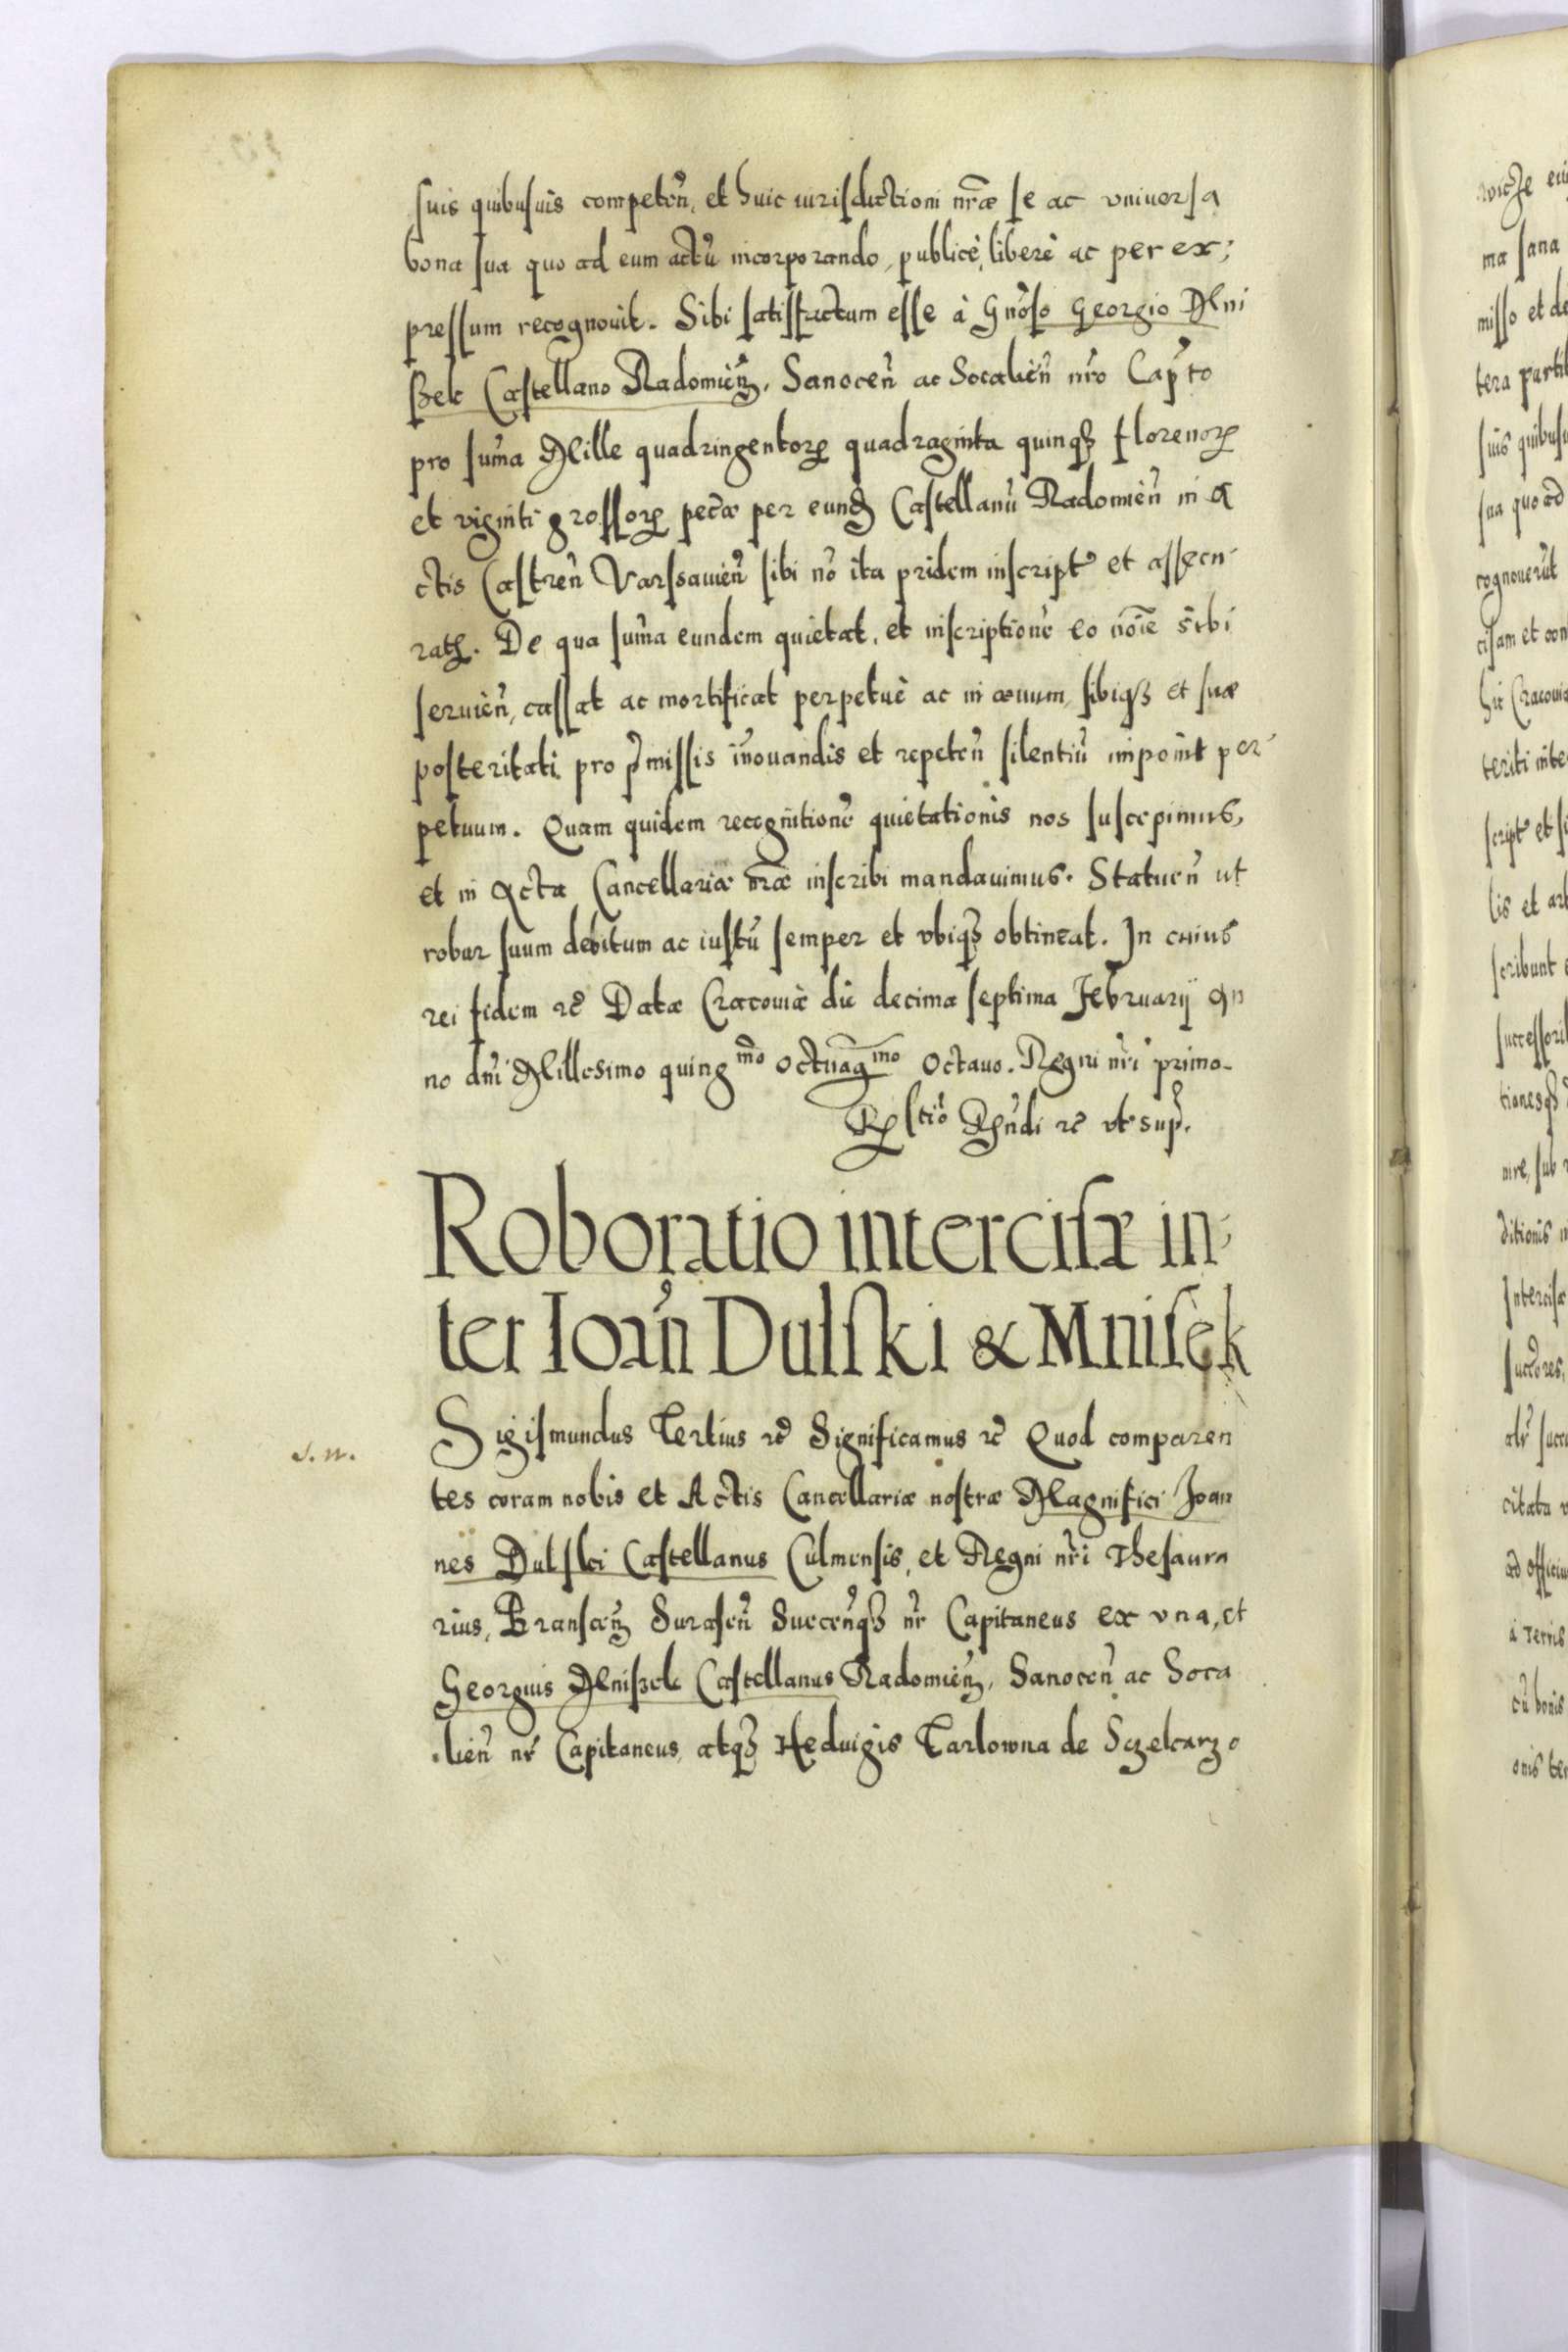 suis quibusuis competen̄, et huic iurisdictioni nr̄æ se ac vniuersa
bona sua quo ad eum actū incorporando, publicè, liberè ac per ex;
pressum recognouit. Sibi satisfactum esse à Gn̄oso Georgio Mni
szek Castellano Radomien̄, Sanocen̄ ac Socalien̄ nr̄o Cap̄to
pro sum̄a Mille quadringentorꝝ quadraginta quinqꝫ florenorꝝ
et viginti grossorꝝ pec̄æ per eund̄ Castellanū Radomien̄ in A
ctis Castren̄ Varssauien̄ sibi nō ita pridem inscript̄ et assecu
ratꝫ. De qua sum̄a eundem quietat, et inscriptionē eo nōīe sibi
seruien̄, cassat ac mortificat perpetuè ac in æuum, sibiqꝫ et suæ
posteritati pro p̄missis īnouandis et repeten̄ silentiū imponit per
petuum. Quam quidem recognitionē quietationis nos suscepimus,
et in Acta Cancellariæ nr̄æ inscribi mandauimus. Statuen̄ ut
robur suum debitum ac iustū semper et vbiqꝫ obtineat. In cuius
rei fidem ⁊c̄ Datæ Cracouiæ die decima septima Februarij An
no dn̄i Millesimo quingmo octuagmo Octauo. Regni nr̄i primo.
Rꝑ ctiō Rn̄di ⁊c̄ vt sup̄.
Roboratio intercisæ in-
ter Ioan̄ Dulski & Mnisek
J. W.
Sigismundus Tertius ⁊c̄ Significamus ⁊c̄ Quod comparen
tes coram nobis et Actis Cancellariæ nostræ Magnifici Joan
nes Dulski Castellanus Culmensis, et Regni nr̄i Thesaura
rius, Branscen̄ Surasen̄ Suecen̄qꝫ nr̄ Capitaneus ex vna, et
Georgius Mniszek Castellanus Radomien̄, Sanocen̄ ac Soca
lien̄ nr̄ Capitaneus, atqꝫ Heduigis Tarlowna de Sczekarzo